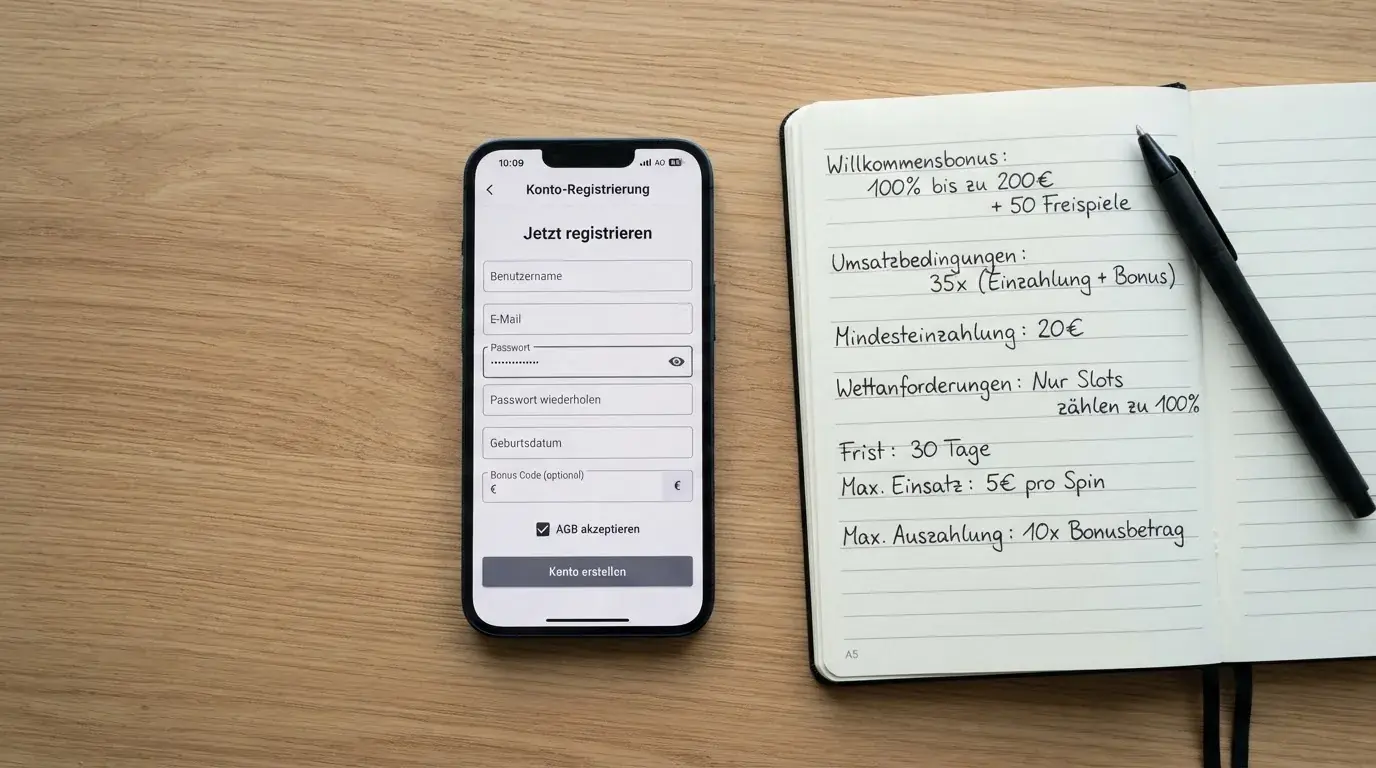 10:09
AO 85
Konto-Registrierung
Jetzt registrieren
Benutzername
E-Mail
Passwort
••••••••••••••
Passwort wiederholen
Geburtsdatum
Bonus Code (optional)
€ €
AGB akzeptieren
Konto erstellen
Willkommensbonus:
100% bis zu 200€
+ 50 Freispiele
Umsatzbedingungen:
35x (Einzahlung + Bonus)
Mindesteinzahlung: 20€
Wettanforderungen: Nur Slots
zählen zu 100%
Frist: 30 Tage
Max. Einsatz: 5€ pro Spin
Max. Auszahlung: 10x Bonusbetrag
A5